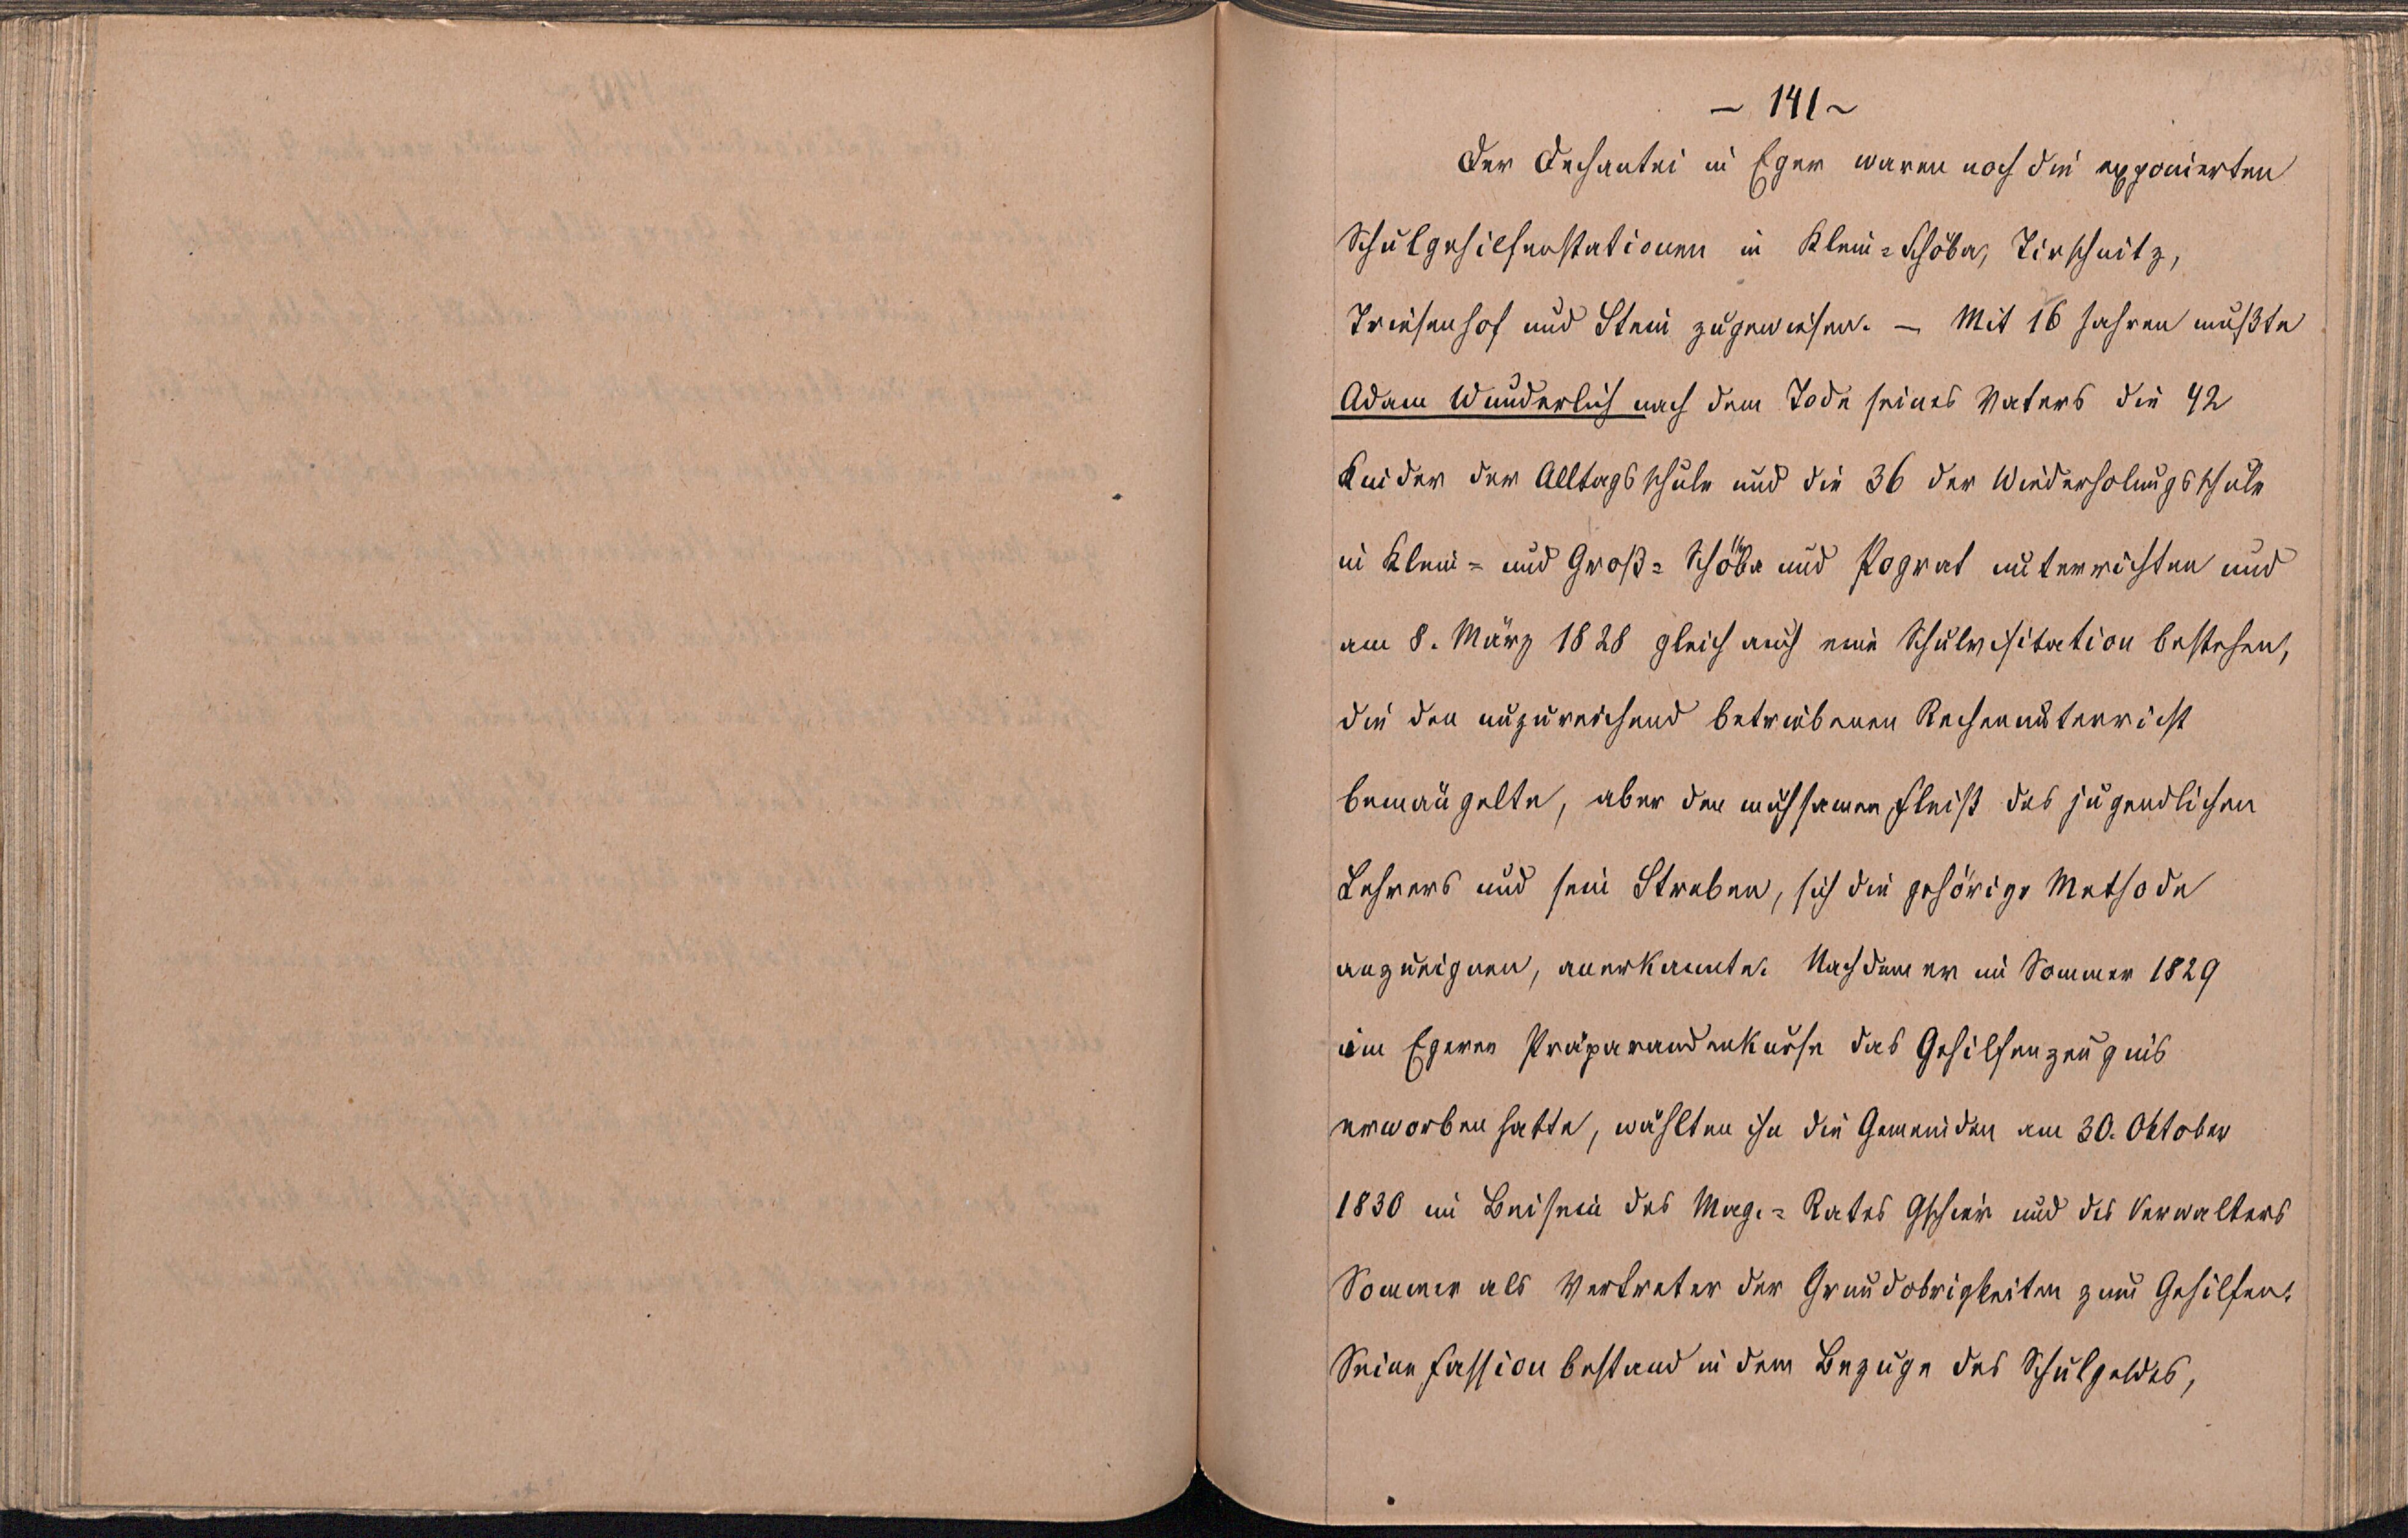 – 141 ~
Der Dechantei in Eger waren noch die exponierten
Schulgehilfenstationen in Klein-Schöba, Tirschnitz,
Triesenhof und Stein zugewiesen. — Mit 16 Jahren mußte
Adam Wunderlich nach dem Tode seines Vaters die 42
Kinder der Alltagsschule und die 36 der Wiederholungsschule
in Klein- und Groß-Schöba und Pograt unterrichten und
am 8. März 1828 gleich auch eine Schulvisitation bestehen,
die den unzureichend betriebenen Rechenunterricht
bemängelte, aber den mühsamen Fleiß des jugendlichen
Lehrers und sein Streben, sich die gehörige Methode
anzueignen, anerkannte. Nachdem er im Sommer 1829
im Egerer Präparandenkurse das Gehilfenzeugnis
erworben hatte, wählten ihn die Gemeinden am 30. Oktober
1830 im Beisein des Mag.-Rates Gschier und des Verwalters
Sommer als Vertreter der Grundobrigkeiten zum Gehilfen.
Seine Fassion bestand in dem Bezuge des Schulgeldes,